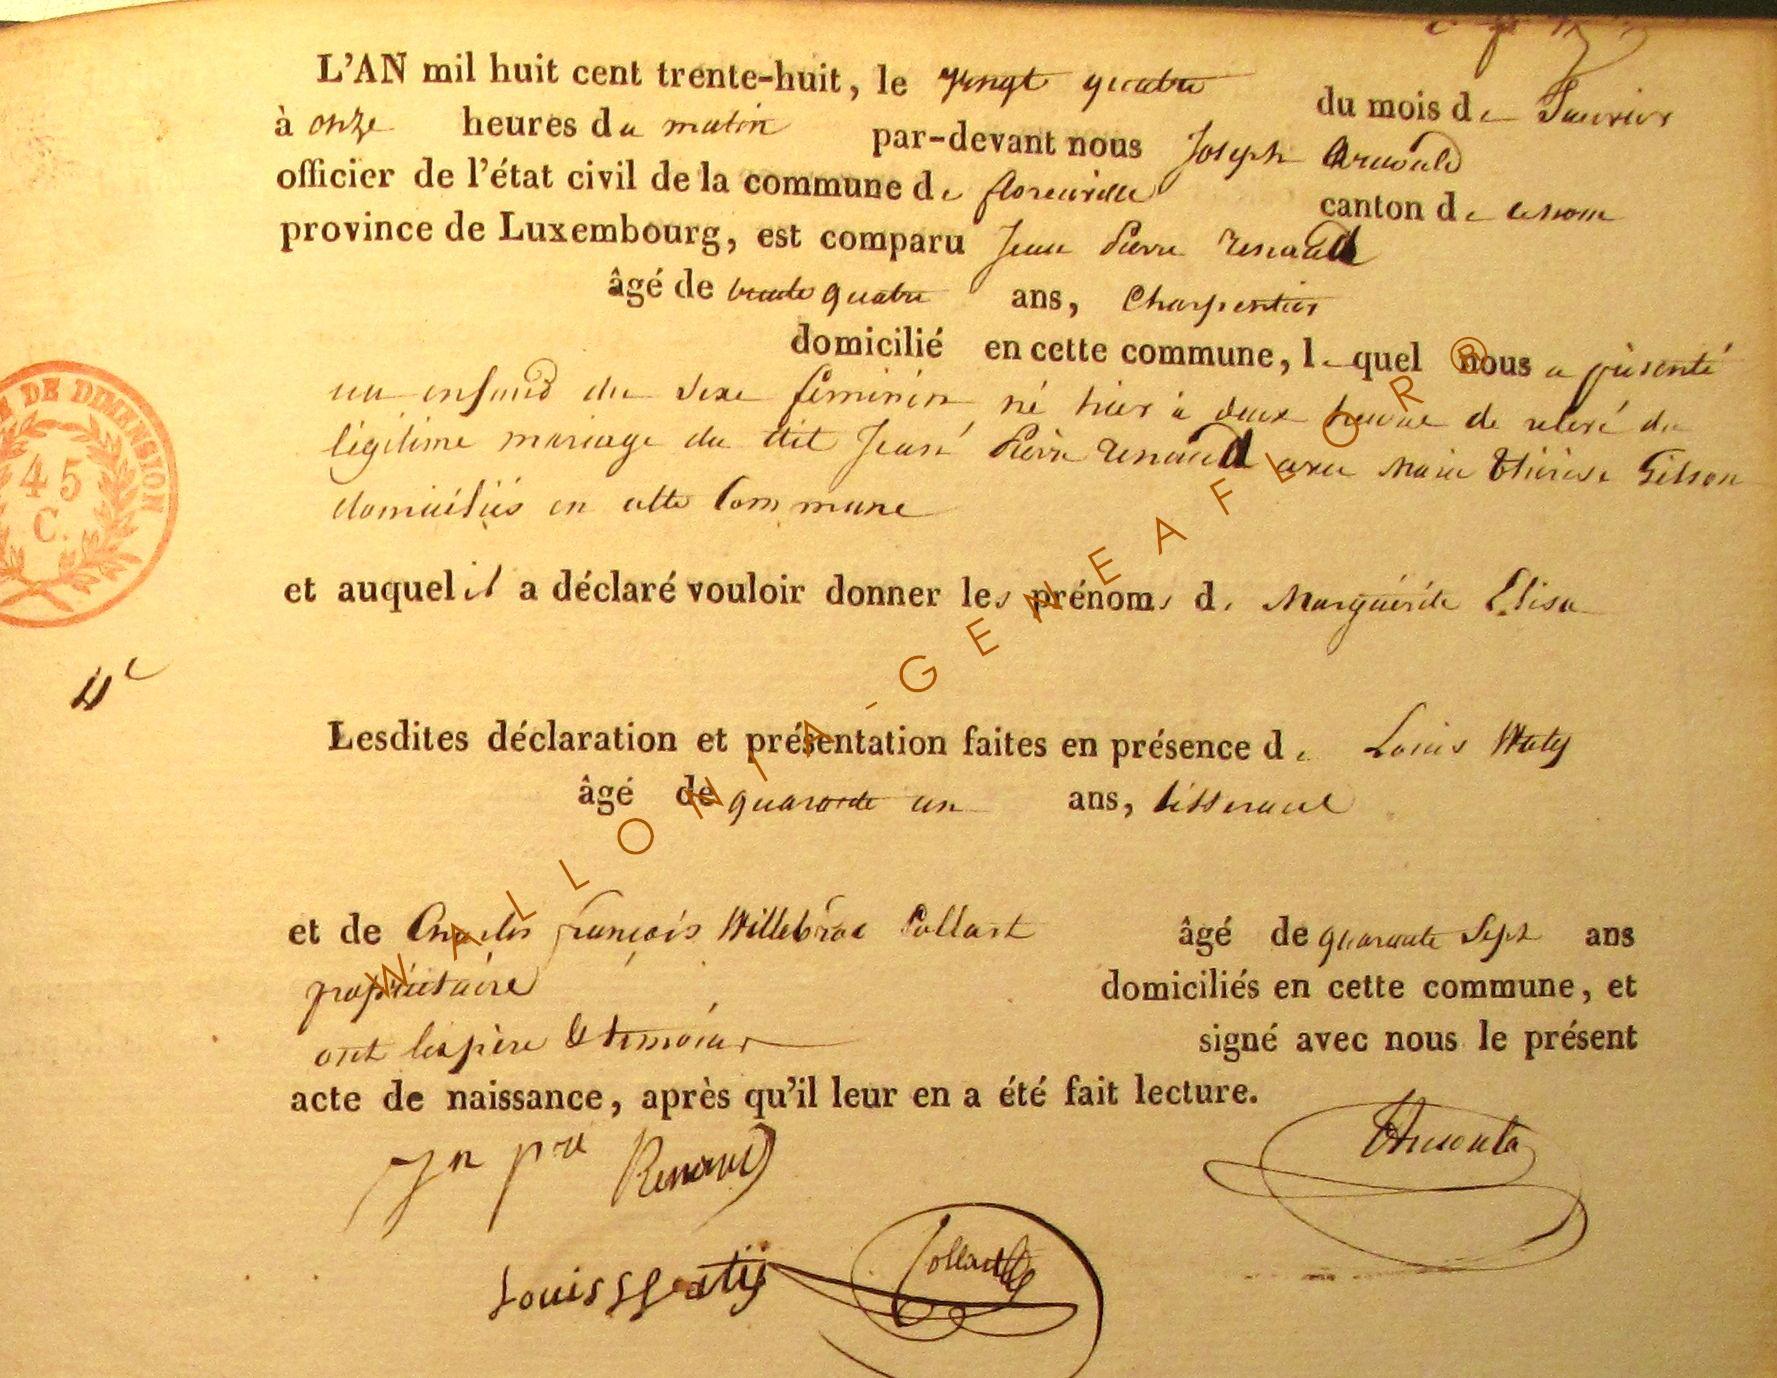 L'AN mil huit cent trente-huit, le vingt quatre du mois de Janvier
à onze heures du matin par-devant nous Joseph Arnould
officier de l'état civil de la commune de florenville canton de
province de Luxembourg, est comparu Jean Pierre renaud
âgé de trente quatre ans, Charpentier
domicilié en cette commune, lequel nous a présenté
un enfant du sexe féminin né hier à deux heures de relevé du
légitime mariage du dit Jean Pierre renaud avec Marie Thérèse Gilson
domiciliés en cette Commune
et auquel il a déclaré vouloir donner les prénoms de Marguérite Elisa
4e
Lesdites déclaration et présentation faites en présence de Louis Waty
âgé de quarante un ans, tisserand
et de Charles françois Willebrod Collart âgé de quarante Sept ans
propriétaire domiciliés en cette commune, et
ont les père & témoins signé avec nous le présent
acte de naissance, après qu'il leur en a été fait lecture.
Jn pre Renaud
Arnould
Louis Watij
Collart
DE DIMENSION
45
C.
WALLONIA-GENEAFLOR®